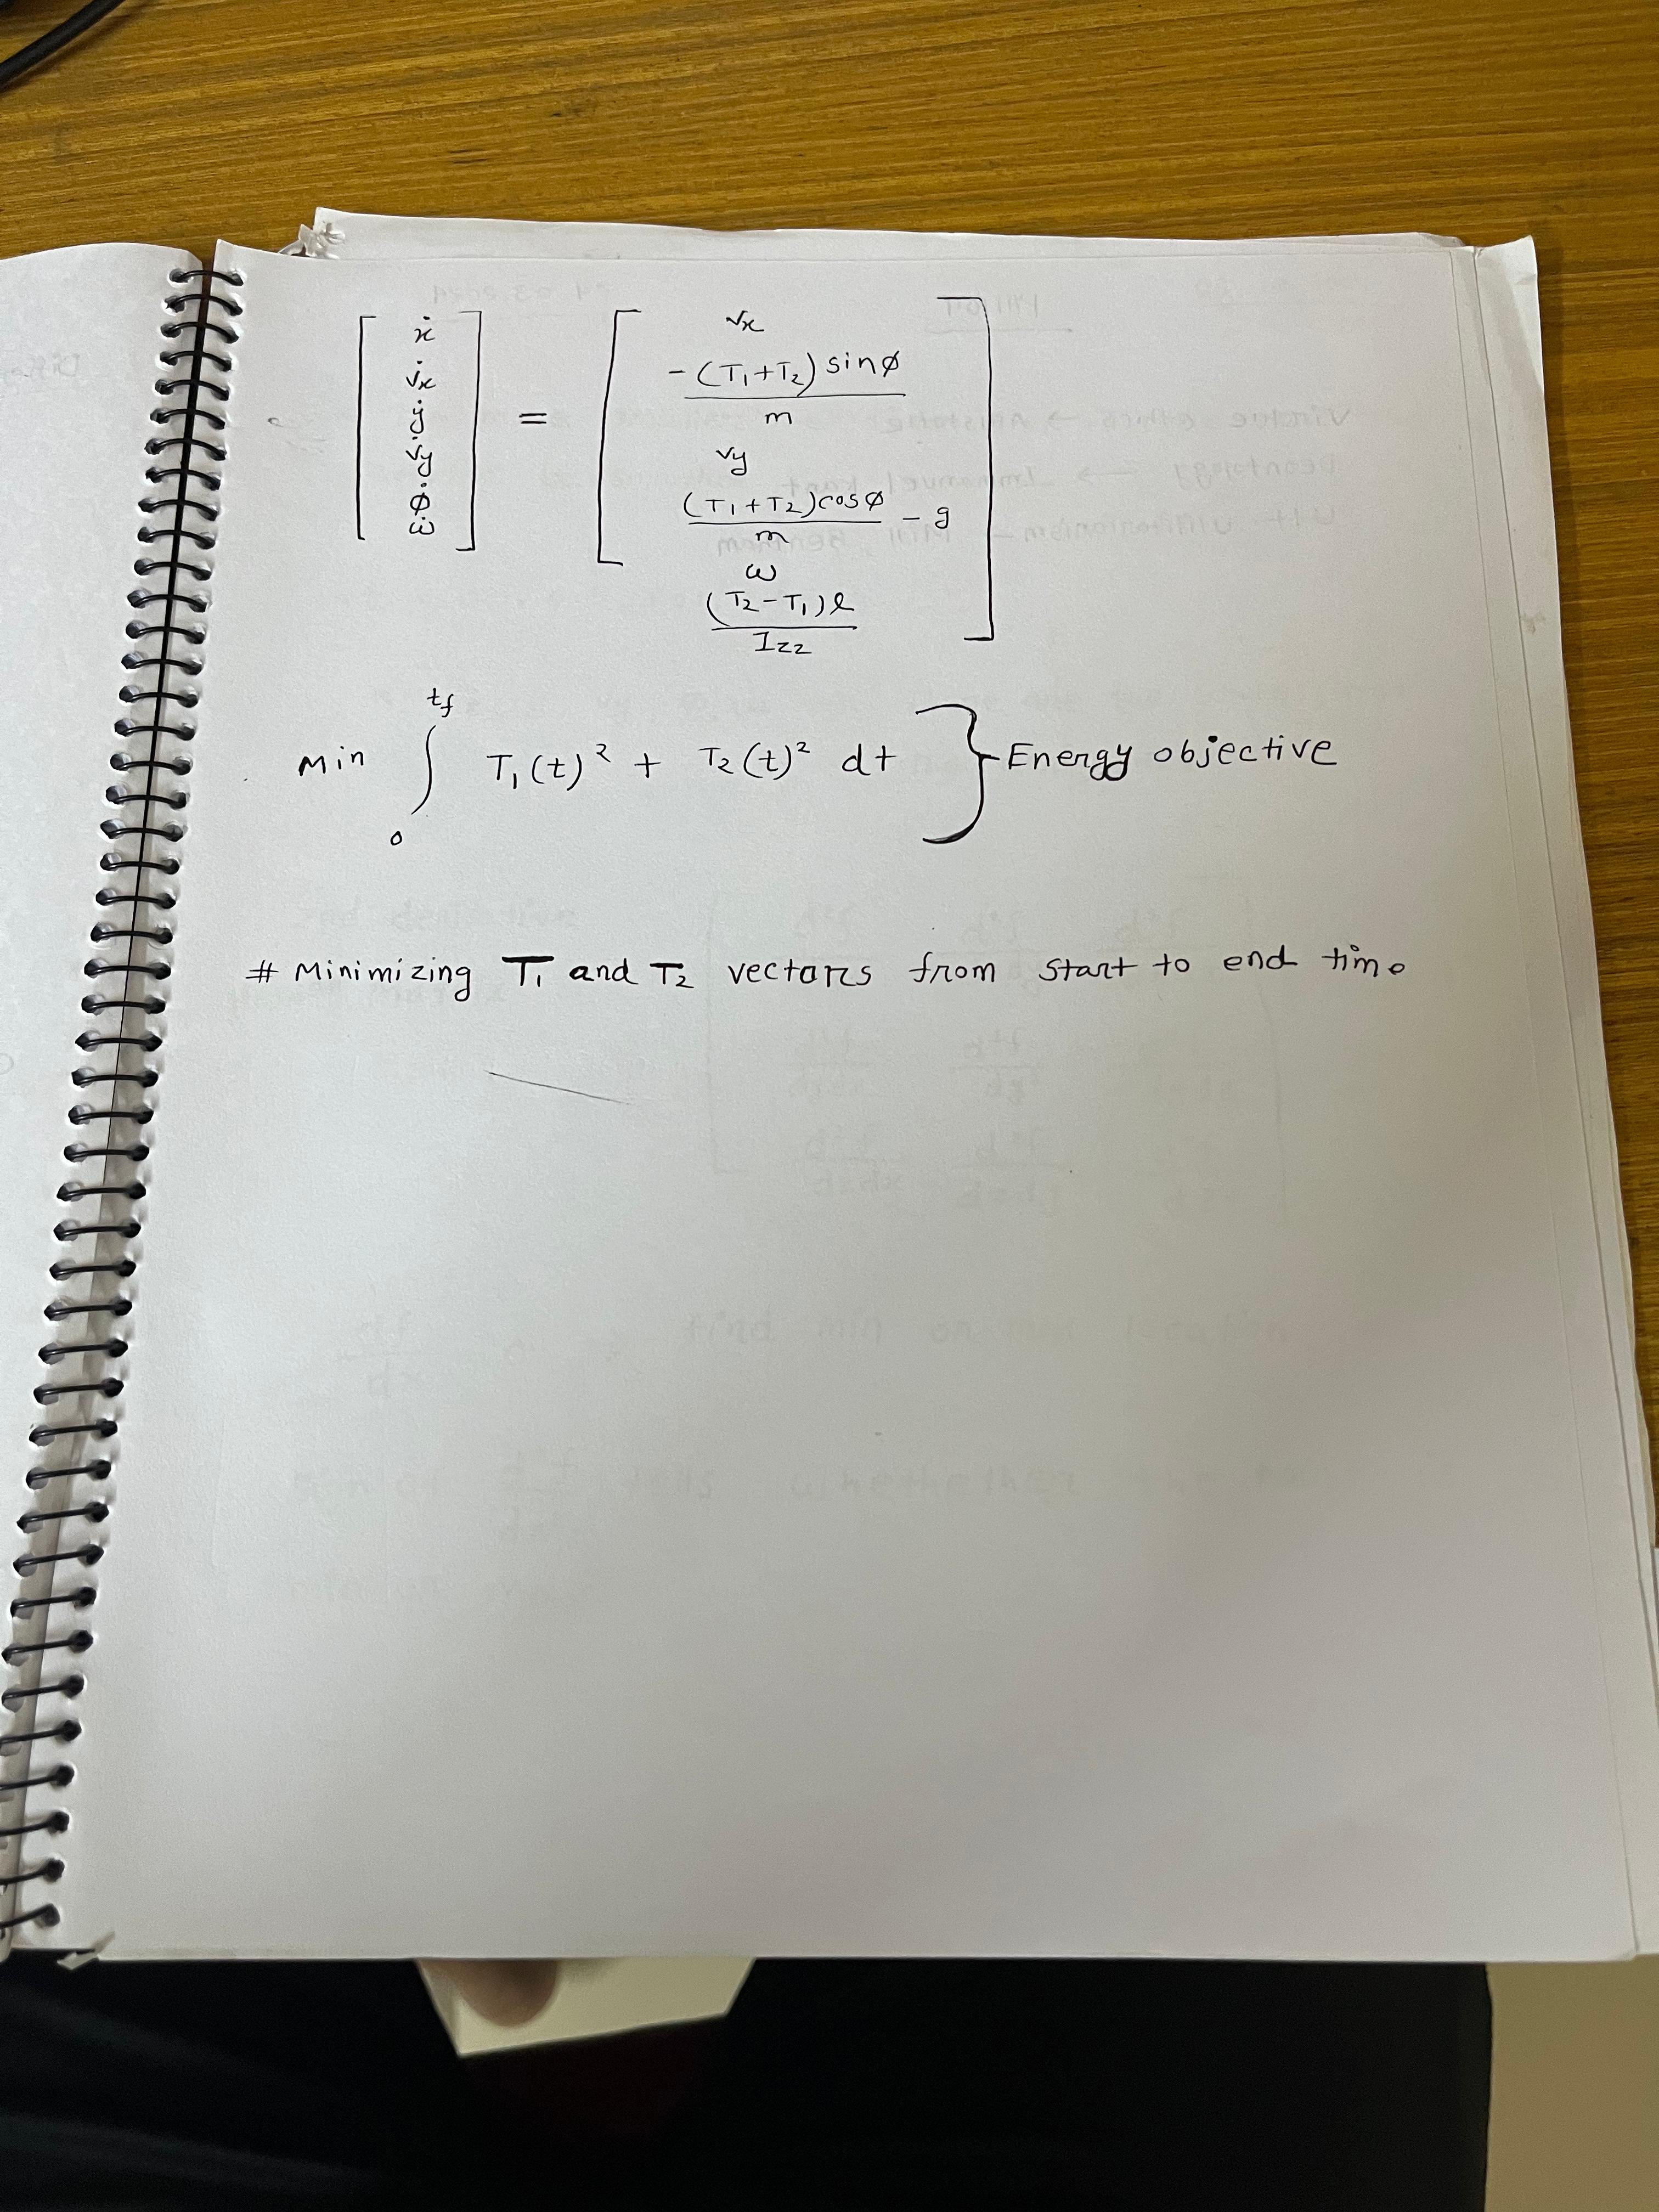 [ ẋ v̇x ẏ v̇y ϕ̇ ω̇ ] = [ vx
-(T₁+T₂) sinϕ / m
vy
(T₁+T₂)cosϕ / m - g
ω
(T₂-T₁)l / Izz ]
Min ∫₀^tf T₁(t)² + T₂(t)² dt } Energy objective
# Minimizing T₁ and T₂ vectors from start to end time